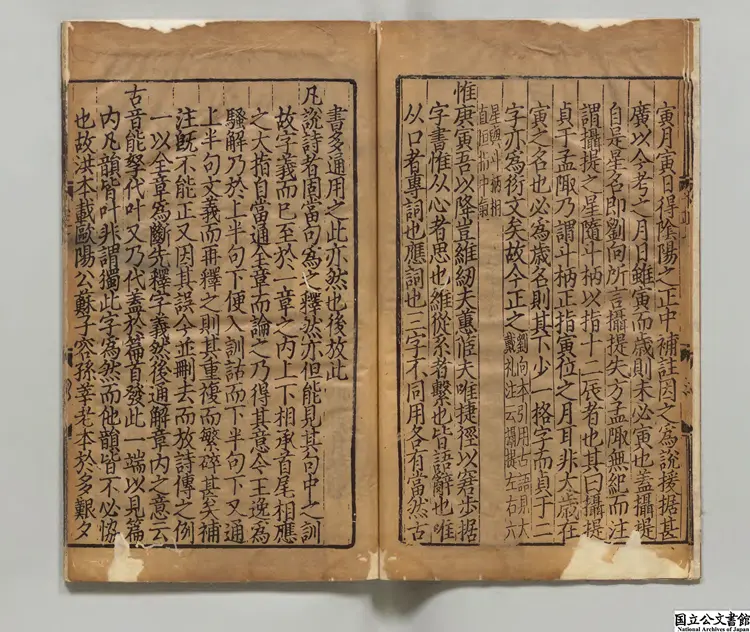 寅月寅日得陰陽之正中補註因之爲說援據甚
廣以今考之月日雖寅而歲則未必寅也蓋攝提
自是星名即劉向所言攝提失方孟陬無紀而注
謂攝提之星隨斗柄以指十二辰者也其曰攝提
貞于孟陬乃謂斗柄正指寅位之月耳非太歲在
寅之名也必爲歲名則其下少一格字而貞于二
字亦爲衍文矣故今正之
劉向本引用古語見大
戴礼注云攝提左右六
星與斗柄相
直恒指中氣
惟庚寅吾以降豈維紉夫蕙茝夫唯捷徑以窘步據
字書惟从心者思也維從糸者繫也皆語辭也唯
从口者專詞也應詞也三字不同用各有當然古
書多通用之此亦然也後放此
凡說詩者固當句爲之釋然亦但能見其句中之訓
故字義而已至於一章之内上下相承首尾相應
之大指自當通全章而論之乃得其意今王逸爲
騷解乃於上半句下便入訓詁而下半句下又通
上半句文義而再釋之則其重複而繁碎甚矣補
注既不能正又因其誤今並刪去而放詩傳之例
一以全章爲斷先釋字義然後通解章内之意云
古音能孥代叶又乃代蓋於篇首發此一端以見篇
内凡韻皆叶非謂獨此字爲然而他韻皆不必協
也故洪本載歐陽公蘇子容孫莘老本於多艱夕
国立公文書館
National Archives of Japan